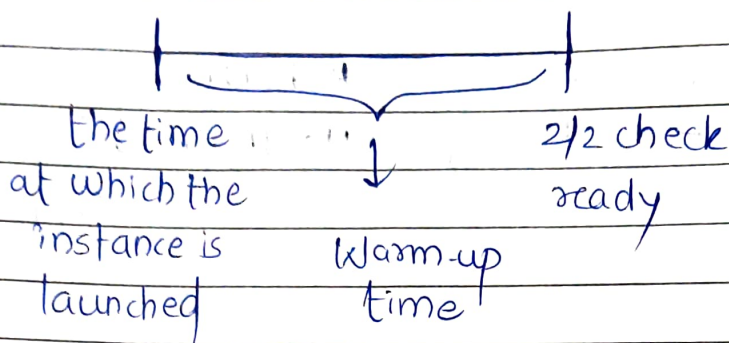 the time
at which the
instance is
launched
Warm-up
time
2/2 check
ready